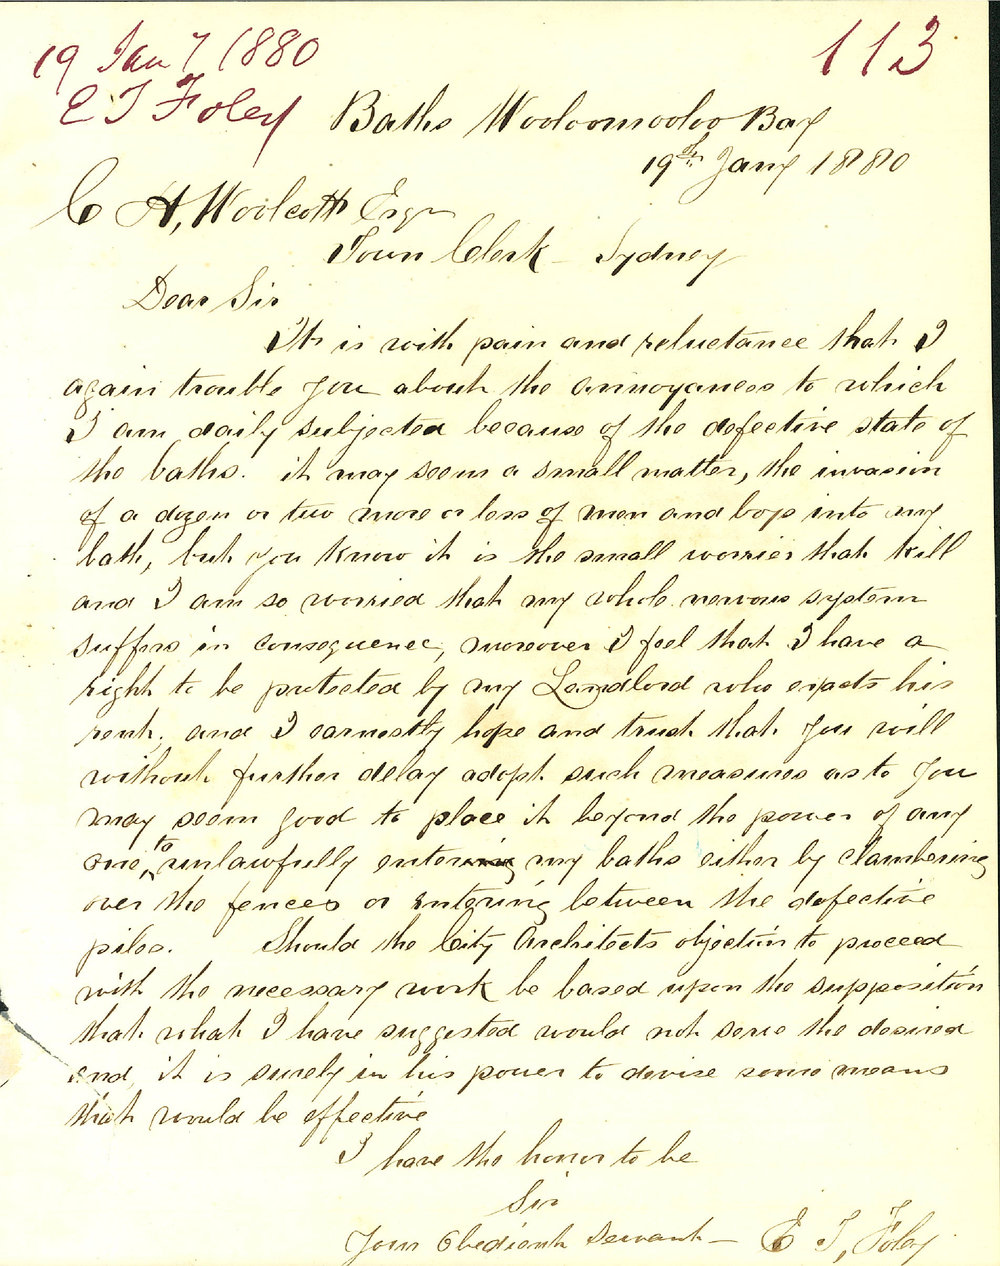 19 Jany 1880
113
E T Foley
Baths Wooloomooloo Bay
19th Jany 1880
C H, Woolcott Esqr
Town Clerk – Sydney
Dear Sir
It is with pain and reluctance that I
again trouble you about the annoyances to which
I am daily subjected because of the defective state of
the baths. it may seem a small matter, the invasion
of a dozen or two more or less of men and boys into my
bath, but you know it is the small worries that kill
and I am so worried that my whole nervous system
suffers in consequence, moreover I feel that I have a
right to be protected by my Landlord who exacts his
rent, and I earnestly hope and trust that you will
without further delay adopt such measures as to you
may seem good to place it beyond the power of any
one, to unlawfully entering my baths either by clambering
over the fences or entering between the defective
piles. Should the City Architects objection to proceed
with the necessary work be based upon the supposition
that what I have suggested would not serve the desired
end, it is surely in his power to devise some means
that would be effective
I have the honor to be
Sir
Your Obedient Servant – E T, Foley